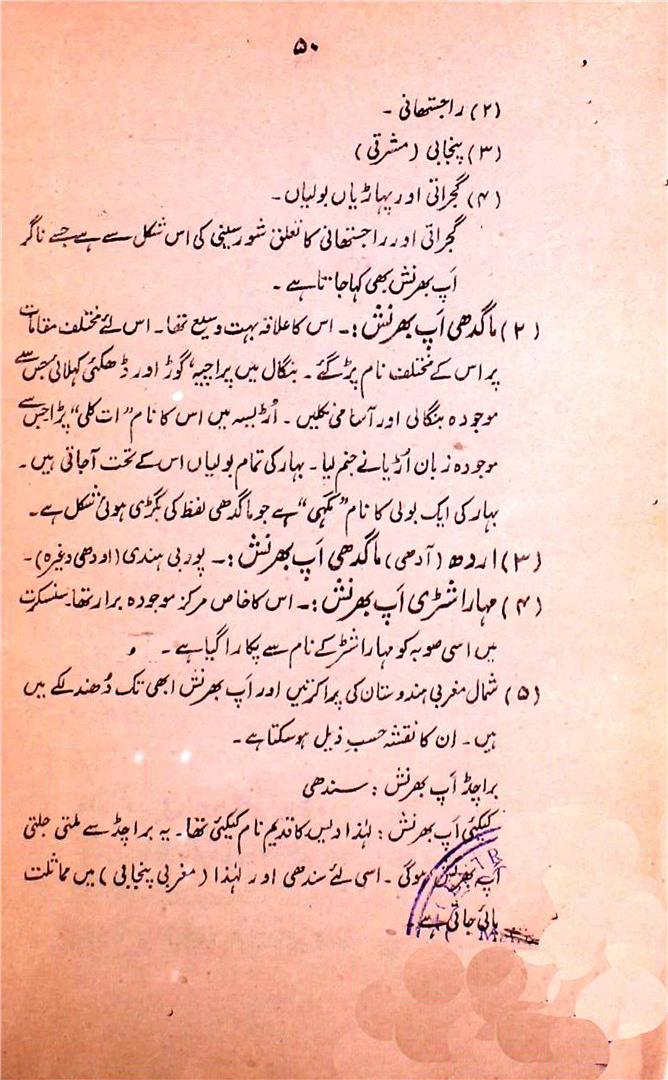 ۵۰
(۲) راجستھانی ۔
(۳) پنجابی (مشرقی)
(۴) گجراتی اور پہاڑیاں بولیاں۔
گجراتی اور راجستھانی کا تعلق شورسینی کی اس شکل سے ہے جسے ناگر
اَپ بھرنش بھی کہا جاتا ہے ۔
(۲) ماگدھی اَپ بھرنش :۔ اس کا علاقہ بہت وسیع تھا۔ اس لئے مختلف مقامات
پر اس کے مختلف نام پڑ گئے ۔ بنگال میں پراچیہ، گوڑ اور ڈھکئی کہلائی جس سے
موجودہ بنگالی اور آسامی نکلیں ۔ اُڑیسہ میں اس کا نام "ات کلی" پڑا جس سے
موجودہ زبان اُڑیا نے جنم لیا ۔ بہار کی تمام بولیاں اس کے تحت آجاتی ہیں۔
بہار کی ایک بولی کا نام "مگہی" ہے جو ماگدھی لفظ کی بگڑی ہوئی شکل ہے۔
(۳) اردھ (آدھی) ماگدھی اَپ بھرنش :۔ پوربی ہندی (اودھی وغیرہ)۔
(۴) مہاراشٹری اَپ بھرنش :۔ اس کا خاص مرکز موجودہ برار تھا۔ سنسکرت
میں اسی صوبہ کو مہاراشٹر کے نام سے پکارا گیا ہے ۔
(۵) شمال مغربی ہندوستان کی پراکرتیں اور اَپ بھرنش ابھی تک دُھندلکے میں
ہیں ۔ ان کا نقشہ حسبِ ذیل ہوسکتا ہے ۔
براچڈ اَپ بھرنش : سندھی
کیکیئی اَپ بھرنش : لہندا دیس کا قدیم نام کیکیئی تھا۔ یہ براچڈ سے ملتی جلتی
اَپ بھرنش ہوگی ۔ اسی لئے سندھی اور لہندا (مغربی پنجابی) میں مماثلت
پائی جاتی ہے۔